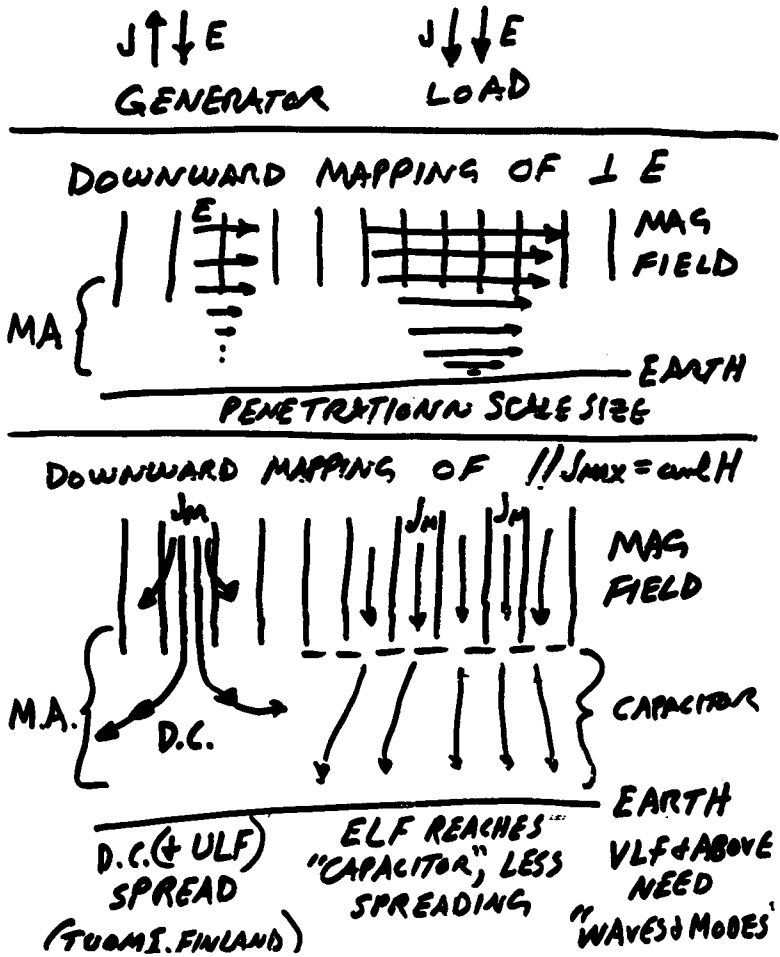 J E J E
GENERATOR LOAD
DOWNWARD MAPPING OF ⊥ E
E
MAG
FIELD
MA
EARTH
PENETRATION ~ SCALE SIZE
DOWNWARD MAPPING OF // JMAX = curl H
JM JM JM
MAG
FIELD
M.A.
D.C.
CAPACITOR
EARTH
D.C. (+ ULF)
SPREAD
(TUOMI. FINLAND)
ELF REACHES
"CAPACITOR", LESS
SPREADING
VLF & ABOVE
NEED
"WAVES & MODES'